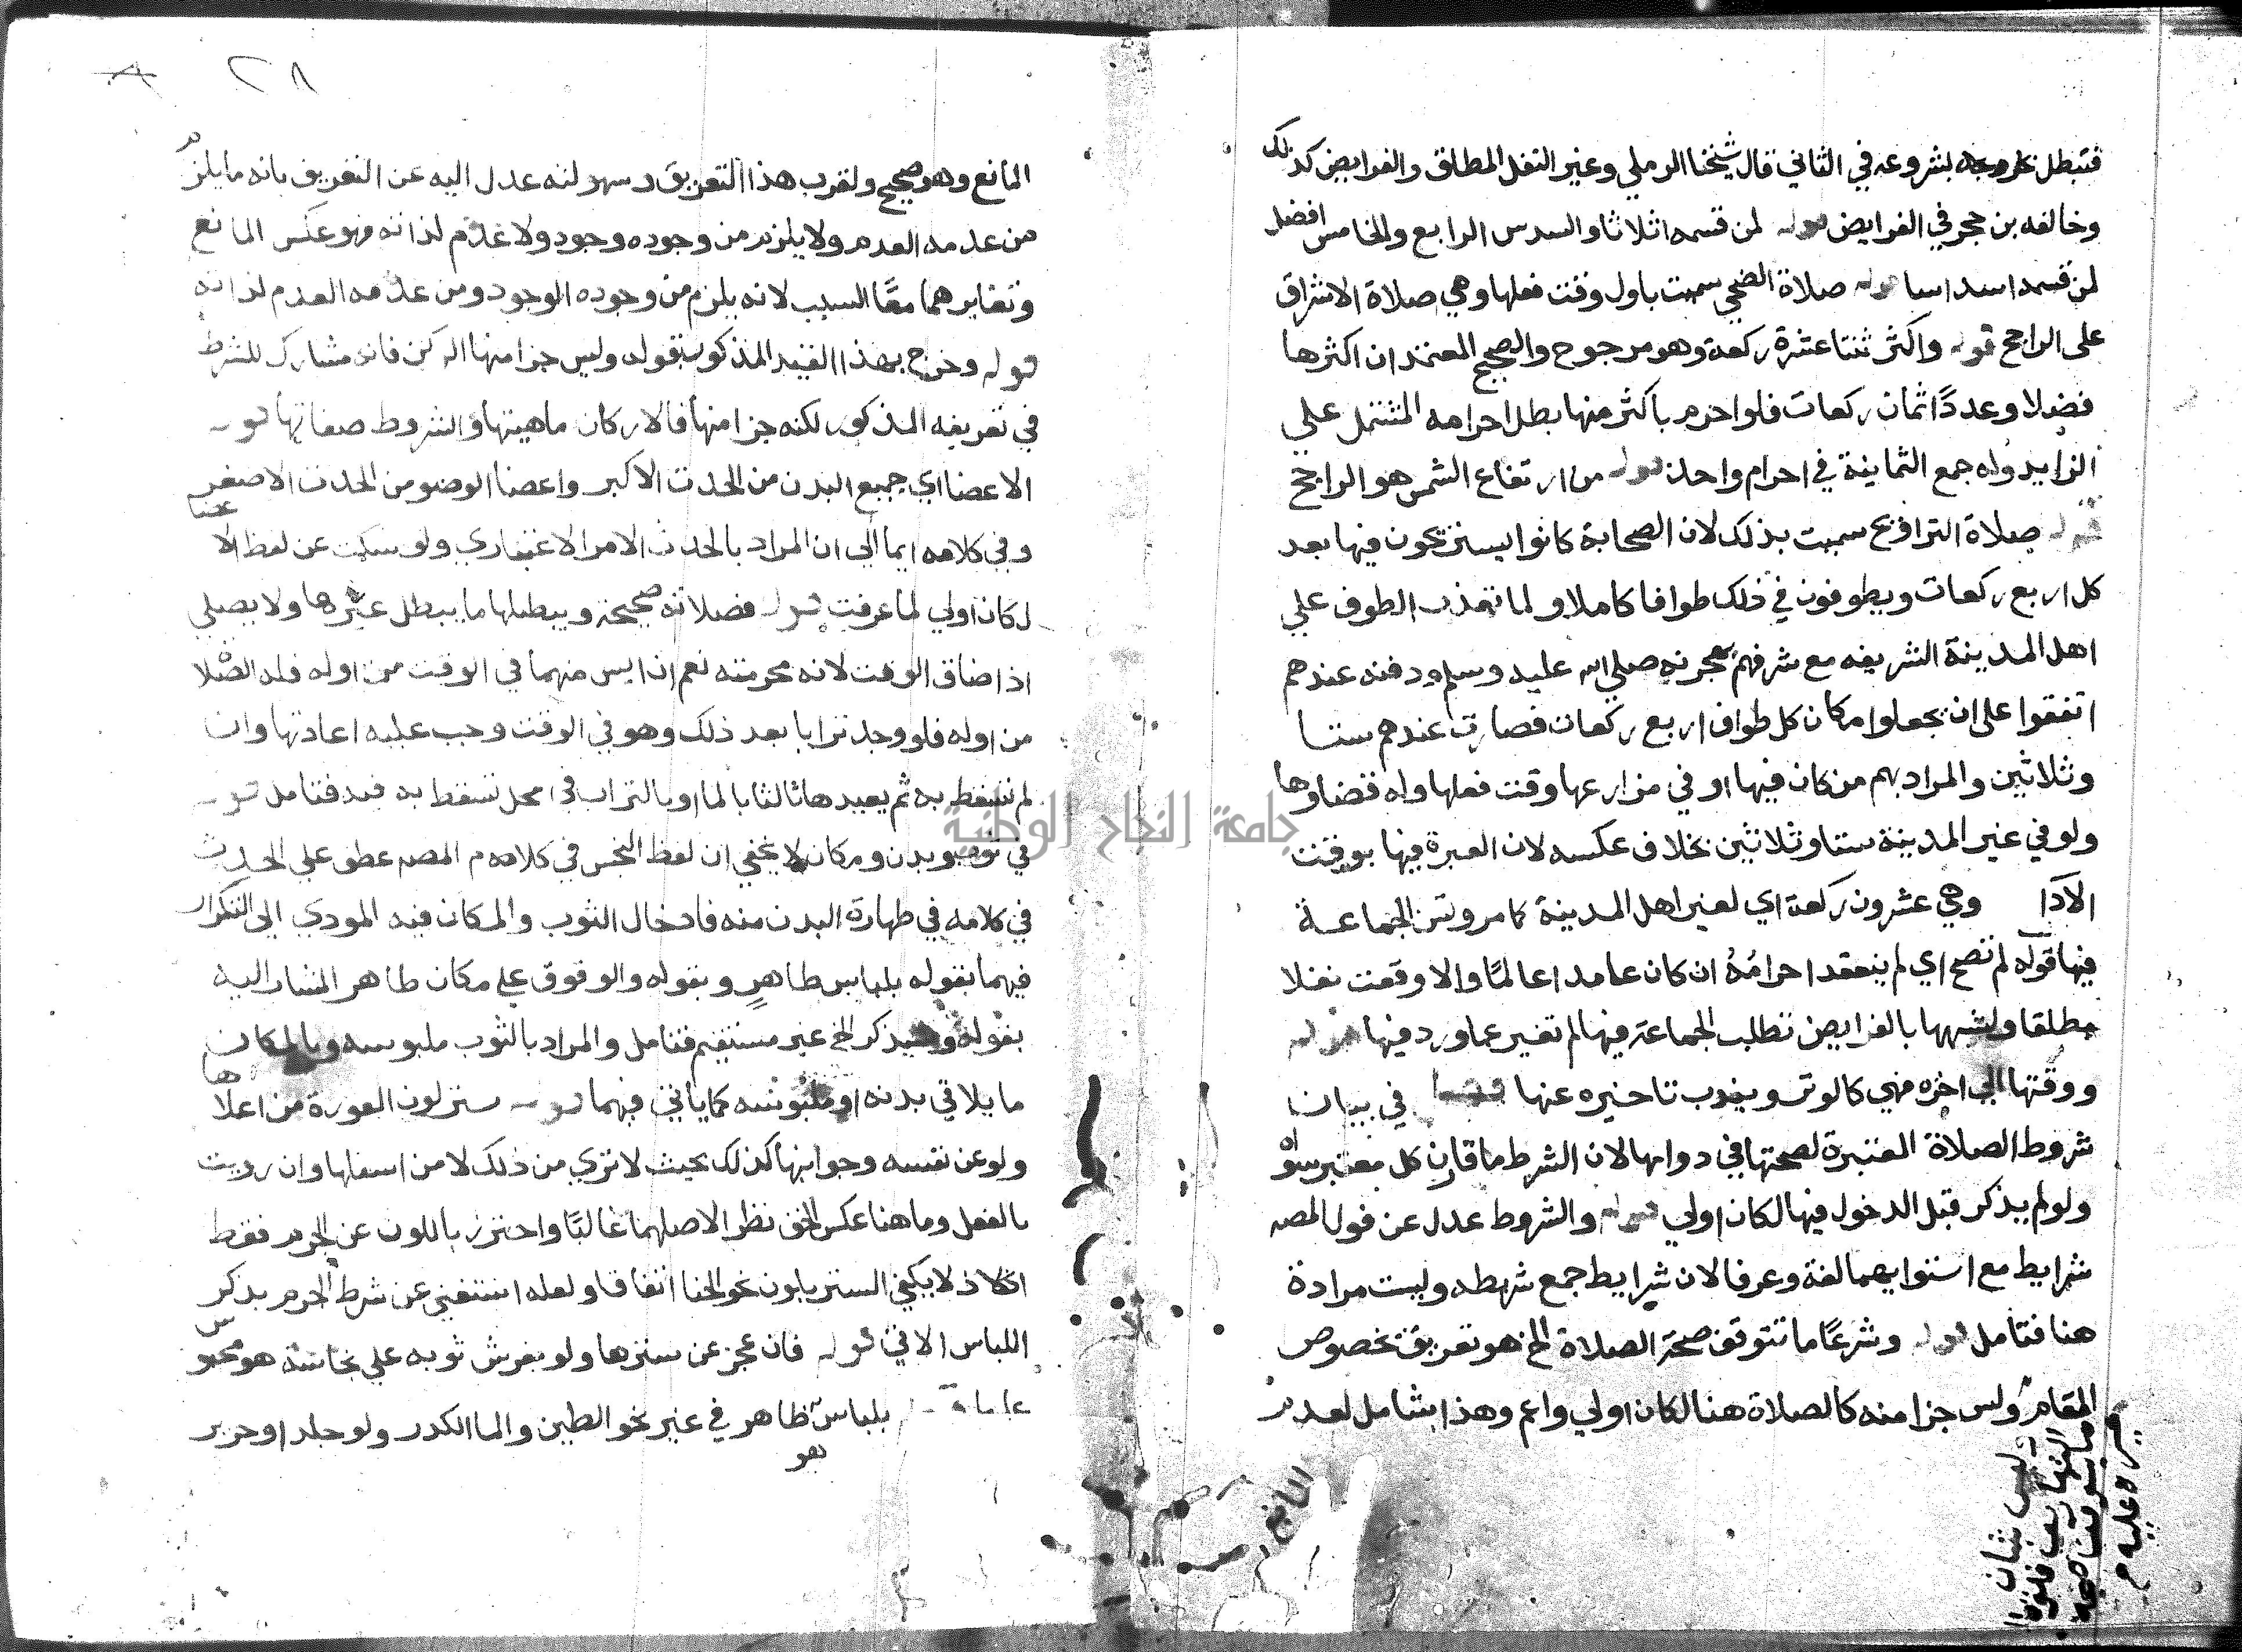 فتبطل بشروعه في الثاني قال شيخنا الرملي وغير النفل المطلق والفرايض كذلك
وخالفه بن حجر في الفرايض قوله لمن قسمه اثلاثا والسدس الرابع والخامس افضل
لمن قسمه اسداسا قوله صلاة الضحي سميت باول وقت فعلها وهي صلاة الاشراق
علي الراجح قوله واكثر ثنتا عشرة ركعة وهو مرجوح والصحيح المعتمد ان اكثرها
فضلا وعددًا ثمان ركعات فلو احرم باكثر منها بطل احرامه المشتمل علي
الزايد وله جمع الثمانية في احرام واحد قوله من ارتفاع الشمس هو الراجح
قوله صلاة التراويح سميت بذلك لان الصحابة كانوا يستريحون فيها بعد
كل اربع ركعات ويطوفون في ذلك طوافا كاملا ولما تعذر الطوف علي
اهل المدينة الشريفه مع شرفهم بهجرته صلي الله عليه وسلم ودفنه عندهم
اتفقوا علي ان يجعلوا مكان كل طواف اربع ركعات فصارت عندهم ستا
وثلاثين والمراد بهم من كان فيها او في مزارعها وقت فعلها وله قضاوها
ولو في غير المدينة ستا وثلاثين بخلاف عكسه لان العبرة فيها بوقت
الآدا وهي عشرون ركعة اي لغير اهل المدينة كما مر وتسن الجماعة
فيها قوله لم تصح اي لم ينعقد احرامُهُ ان كان عامدا عالمًا والا وقعت نفلا
مطلقا ولشبهها بالفرايض تطلب الجماعة فيها لم تغير عما ورد فيها قوله
ووقتها الي اخره فهي كالوتر ويندب تاخيره عنها في بيان
شروط الصلاة المعتبرة لصحتها في دوامها لان الشرط ما قارن كل معتبر سواه
ولو لم يذكر قبل الدخول فيها لكان اولي قوله والشروط عدل عن قول المصه
شرايط مع استوايهما لغة وعرفا لان شرايط جمع شريطه وليست مرادة
هنا فتامل قوله وشرعًا ما تتوقف صحة الصلاة الخ هو تعريف بخصوص
المقام وليس جزا منه كالصلاة هنا لكان اولي واعم وهذا شامل لعدم
المانع
المانع وهو صحيح ولقرب هذا التعريف وسهولته عدل اليه عن التعريف بانه ما يلزم
من عدمه العدم ولا يلزم من وجوده وجود ولا عدم لذاته فهو عكس المانع
وتغايرهما معًا السبب لانه يلزم من وجوده الوجود ومن عدمه العدم لذاته
قوله وخرج بهذا القيد المذكور بقوله وليس جزا منها الركن فانه مشارك للشرط
في تعريفه المذكور لكنه جزا منها فالاركان ماهيتها والشروط صفاتها قوله
الاعضا اي جميع البدن من الحدث الاكبر واعضا الوضو من الحدث الاصغر
وفي كلامه ايما الي ان المراد بالحدث الامر الاعتباري ولو سكت عن لفظ الاعضا
لكان اولي لما عرفت قوله فصلاته صحيحة ويبطلها ما يبطل غيرها ولا يصلي
اذا ضاق الوقت لانه محرمته نعم ان ايس منهما في الوقت من اوله فله الصلاه
من اوله فلو وجد ترابا بعد ذلك وهو في الوقت وجب عليه اعادتها وان
لم تسقط به ثم يعيدها ثالثا بالما او بالتراب في محل تسقط به فيه فتامل قوله
في ثوب وبدن ومكان لا يخفي ان لفظ النجس في كلام المصه عطف علي الحدث
في كلامه في طهارة البدن منه فادخال الثوب والمكان فيه المودي الي التكرار
فيهما بقوله بلباس طاهر وبقوله والوقوف علي مكان طاهر المشار اليه
بقوله يذكر الخ غير مستقيم فتامل والمراد بالثوب ملبوسه وبالمكان
ما يلاقي بدنه او ملبوسه كما ياتي فيهما قوله ستر لون العورة من اعلاها
ولو عن نفسه وجوانبها كذلك بحيث لا تري من ذلك لا من اسفلها وان رويت
بالفعل وما هنا عكس الخف نظرا لاصلهما غالبًا واحترز باللون عن الجرم فقط
لا يكفي الستر بلون نحو الحنا اتفاقا ولعله استغني عن شرط الجرم بذكر
اللباس الاتي قوله فان عجز عن سترها ولو بفرش ثوبه علي نجاسة هو محبوس
عليها قوله بلباس طاهر في غير نحو الطين والما الكدر ولو جلد او حرير